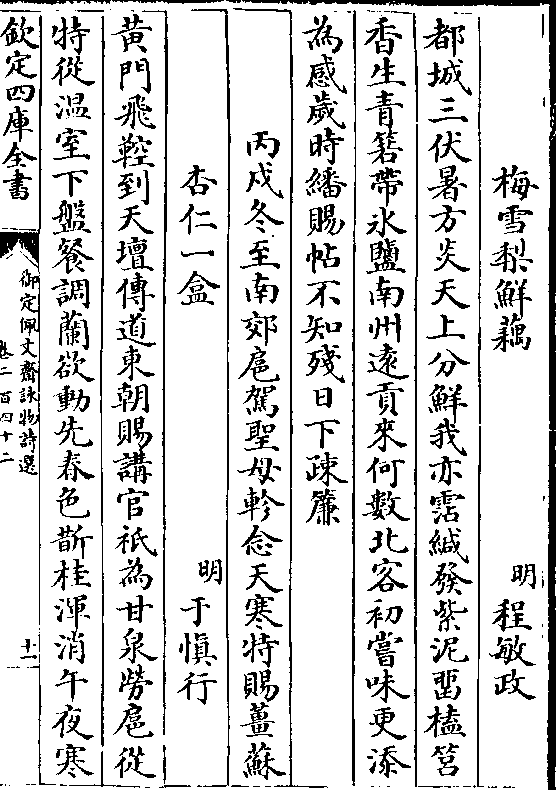 梅雪梨鮮藕
明　程敏政
都城三伏暑方炎天上分鮮我亦霑緘發紫泥罌榼筥
香生青箬帶氷鹽南州遠貢來何數北客初嘗味更添
為感歲時繙賜帖不知殘日下疎簾
丙戌冬至南郊扈駕聖母軫念天寒特賜薑蘇
杏仁一盒
明　于慎行
黃門飛鞚到天壇傳道東朝賜講官祇為甘泉勞扈從
特從溫室下盤餐調蘭欲動先春色斸桂渾消午夜寒
欽定四庫全書
御定佩文齋詠物詩選
卷二百四十二
十一